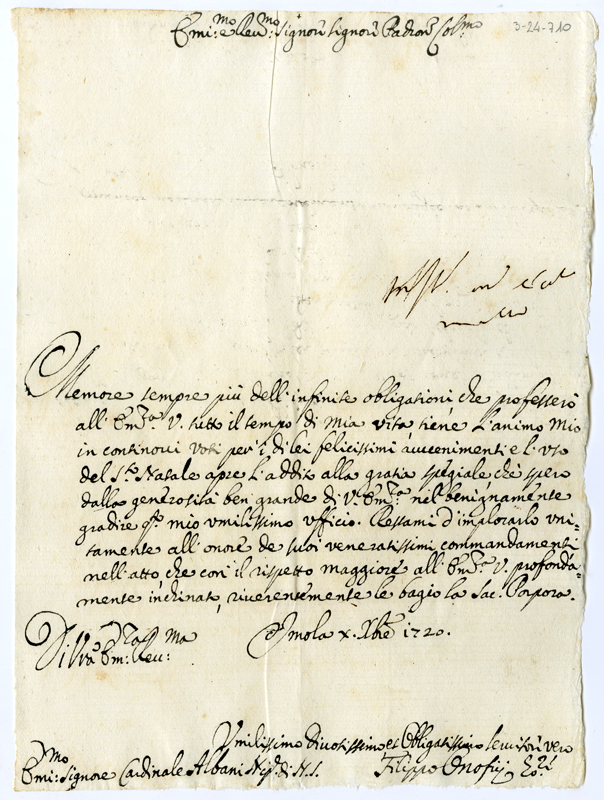 3-24-710
Emi:mo e Reu:mo Signori Signori Padron Col:mo
Memore sempre più dell'infinite obligationi, che professerò
all'Em:za V. tutto il tempo di mia vita, tiene l'animo mio
in continoui voti per i di lei felicissimi auuenimenti e l'uso
del S:to Natale apre l'addito alla gratia spegiale, che spero
dalla generosità ben grande di V: Em:za nel benignamente
gradire q:to mio umilissimo ufficio. Restami d'implorarlo uni=
tamente all'onore de suoi veneratissimi commandamenti
nell'atto, che con il rispetto maggiore all'Em:za V. profonda=
mente inchinato, riuerentemente le bagio la Sac. Porpora.
Di V:ra Em:za Reu:ma Imola X. Xbre 1720.
Umilissimo Diuotissimo et Obligatissimo Seruitore vero
Emi:mo Signore Cardinale Albani Nip: di N. S. Filippo Onofrij